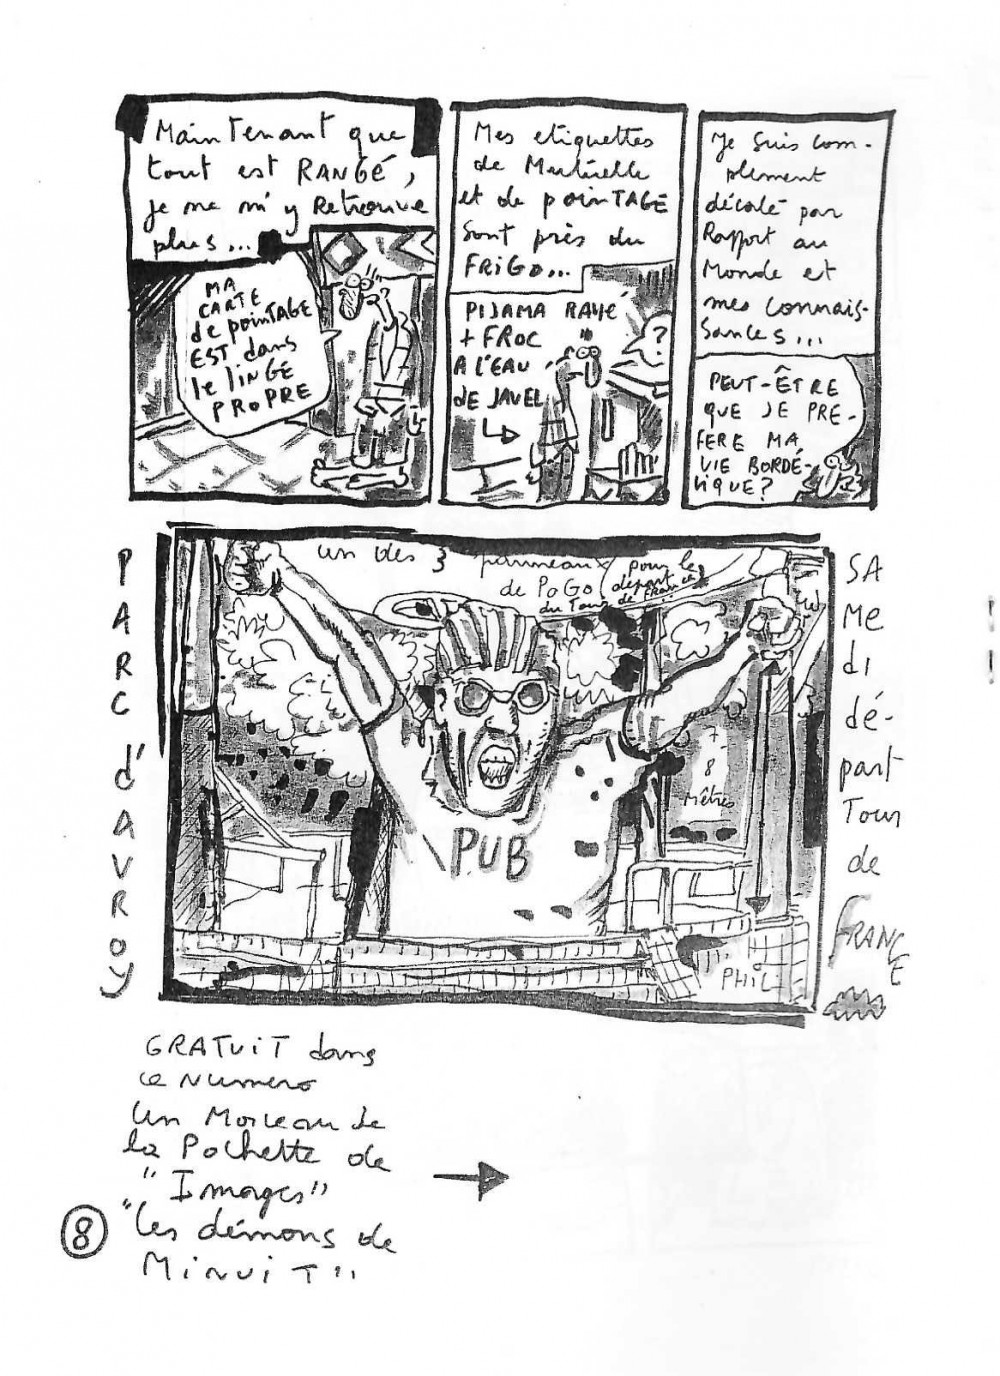 Maintenant que
tout est RANGÉ,
je ne m'y Retrouve
plus...
MA
CARTE
de poinTAGE
EST dans
le liNGE
PROPRE
Mes etiquettes
de Mutuelle
et de poinTAGE
sont près du
FRiGo...
PIJAMA RAYÉ
+ FROC
A l'EAU
de JAVEL
?
Je suis com-
plement
décalé par
Rapport au
Monde et
mes connais-
sances...
PEUT-ÊTRE
QUE JE PRE-
FERE MA
VIE BORDÉ-
LIQUE?
PARC d'AVROY
un des 3 panneaux
de PoGo
du Tour
(pour le
départ
de France)
PUB
7-
8
Mètres
PHIL
SA
Me
di
dé-
part
Tour
de
FRANC
E
GRATUiT dans
ce Numero
Un Morceau de
la Pochette de
"Images"
"les démons de
MiNUiT"
8